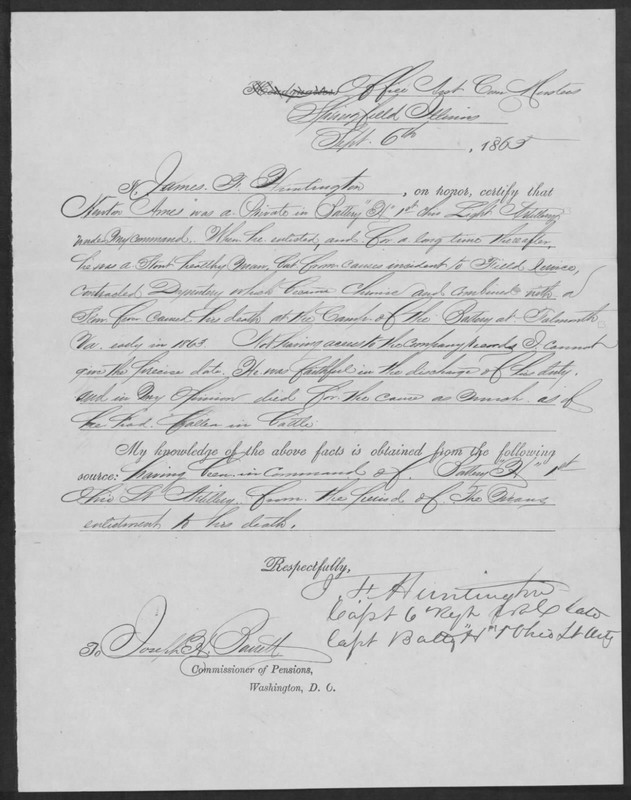 Headquarters Office Asst Com Musters
Springfield Illinois
Sept. 6th, 1865
I, James. F. Huntington, on honor, certify that
Newton Ames was a Private in Battery "H" 1st Ohio Light Artillery
under My command. When he enlisted, and for a long time thereafter,
he was a Stout healthy Man, but from causes incident to Field Service,
contracted Dysentery which became Chronic and combined with a
Fever caused his death at the Camp of the Battery at Falmouth
Va. early in 1863. Not having access to the Company records I cannot
give the precise date. He was faithful in the discharge of his duty.
and in My Opinion died for the cause as much as if
he had fallen in battle.
My knowledge of the above facts is obtained from the following
source: having been in command of Battery "H" 1st
Ohio Lt Artillery from the period of the Mans
enlistment to his death.
Respectfully,
J F Huntington
Capt 6" Regt V R C late
Capt Batty "H" 1" Ohio Lt Arty
To Joseph H. Barrett
Commissioner of Pensions,
Washington, D. C.